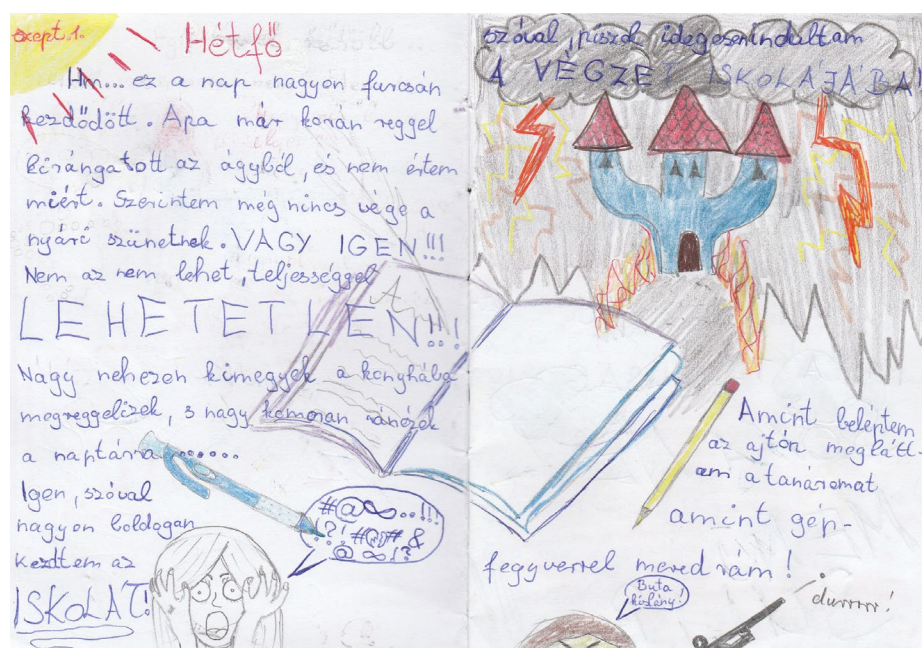 szept.1.
Hétfő
Hm... ez a nap nagyon furcsán
kezdődött. Apa már korán reggel
kirángatott az ágyból, és nem értem
miért. Szerintem még nincs vége a
nyári szünetnek. VAGY IGEN!!!
Nem az nem lehet, teljességgel
LEHETETLEN!!!
Nagy nehezen kimegyek a konyhába
megreggelizek, s nagy komoran ránézek
a naptárra.......
Igen, szóval
nagyon boldogan
kezdtem az
ISKOLÁT!
#@∞..!!!
!?! #@# &
@ ∞!?
szóval, piszok idegesen indultam
A VÉGZET ISKOLÁJÁBA
Amint beléptem
az ajtón meglátt-
am a tanáromat
amint gép-
fegyverrel mered rám!
Buta
kislány!
durrrr!